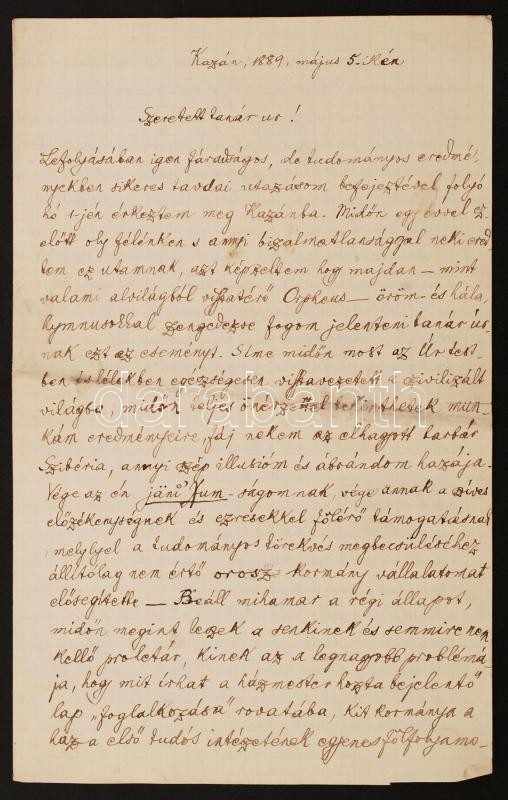 Kazán, 1889, május 5.-ikén
Szeretett tanár ur!
Lefolyásában igen fáradságos, de tudományos eredmé-
nyekben sikeres tavdai utazásom befejeztével folyó
hó 1-jén érkeztem meg Kazánba. Midőn egy évvel ez-
előtt oly félénken s annyi bizalmatlansággal neki ered-
tem ez utamnak, azt képzeltem hogy majdan – mint
valami alvilágból visszatérő Orpheus – öröm- és hála-
hymnusokkal zengedezve fogom jelenteni tanár úr-
nak ezt az eseményt. S íme midőn most az Úr test-
ben és lélekben egészségesen visszavezetett a civilizált
világba, midőn teljes önérzettel tekinthetek mun-
kám eredményeire, fáj nekem az elhagyott barbár
Szibéria, annyi szép illusióm és ábrándom hazája.
Vége az én jäni χum-ságomnak, vége annak a szíves
előzékenységnek és ezresekkel fölérő támogatásnak,
melylyel a tudományos törekvés megbecsüléséhez
állítólag nem értő orosz kormány vállalatomat
elősegítette – Beáll mihamar a régi állapot,
midőn megint leszek a senkinek és semmire nem
kellő proletár, kinek az a legnagyobb problémá-
ja, hogy mit írhat a házmester hozta bejelentő
lap „foglalkozása" rovatába, kit kormánya a
haza első tudós intézetének egyenes fölfolyamo-
darabanth